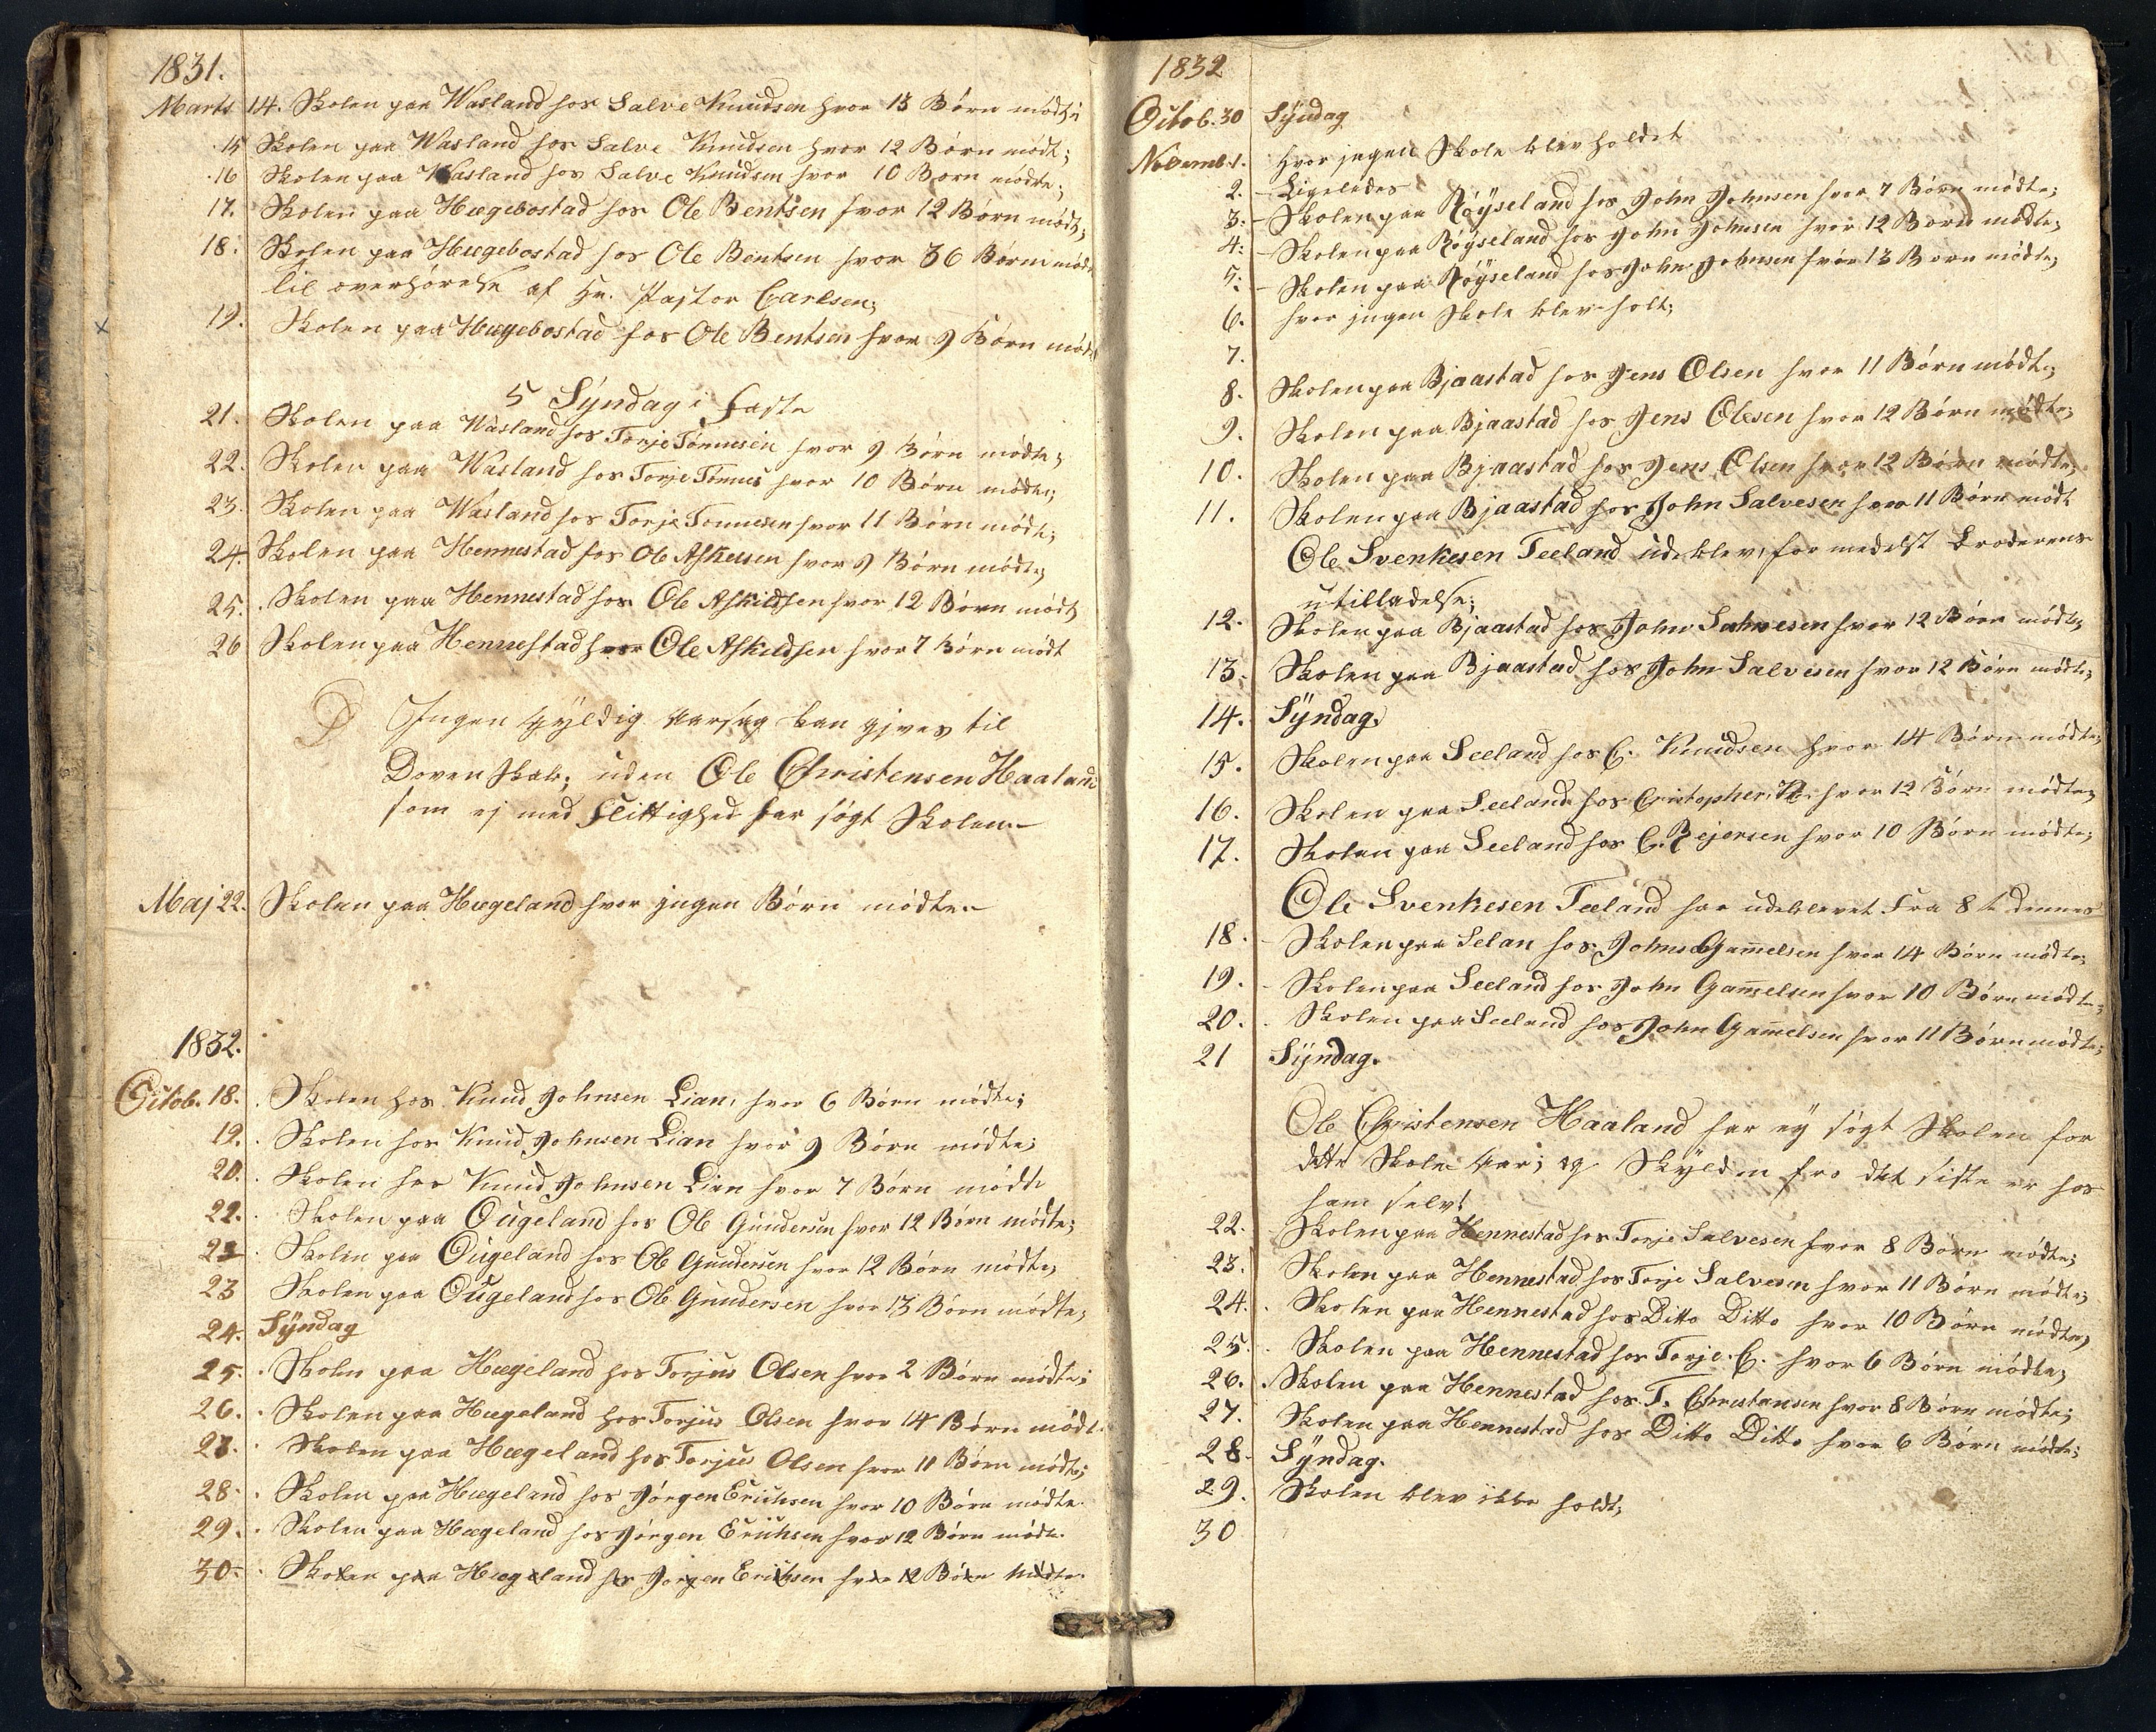 1831.
Marts 14. Skolen paa Wasland hos Salve Knudsen hvor 13 Børn mødte
15 Skolen paa Wasland hos Salve Knudsen hvor 12 Børn mødt;
16 Skolen paa Wasland hos Salve Knudsen hvor 10 Børn mødte;
17. Skolen paa Hægebostad hos Ole Bentsen hvor 12 Børn mødt;
18. Skolen paa Hægebostad hos Ole Bentsen hvor 36 Børn mødt
til overhørelse af Hr. Pastor Carlsen;
19. Skolen paa Hægebostad hos Ole Bentsen hvor 9 Børn mødt
5 Syndag i Faste
21. Skolen paa Wasland hos Torje Tønnesen hvor 9 Børn mødte;
22. Skolen paa Wasland hos Torje Tønnes hvor 10 Børn mødte;
23. Skolen paa Wasland hos Torje Tønnesen hvor 11 Børn mødte;
24. Skolen paa Hennestad hos Ole Askelsen hvor 9 Børn mødte;
25. Skolen paa Hennestad hos Ole Askildsen hvor 12 Børn mødt;
26 Skolen paa Hennestad hvor Ole Askildsen hvor 7 Børn mødt
Ingen Gyldig Aarsag kan gives til
Dovenskab; uden Ole Christensen Haaland
som ej med Flittighed har søgt Skolen
Maj 22. Skolen paa Hægeland hvor ingen Børn mødte
1832.
Octob. 18. Skolen hos Knud Johnsen Lian, hvor 6 Børn mødte;
19. Skolen hos Knud Johnsen Lian hvor 9 Børn mødte;
20. Skolen hos Knud Johnsen Lian hvor 7 Børn mødte
22. Skolen paa Ougeland hos Ole Gundersen hvor 12 Børn mødte;
23 Skolen paa Ougeland hos Ole Gundersen hvor 12 Børn mødte;
23 Skolen paa Ougeland hos Ole Gundersen hvor 13 Børn mødte;
24. Syndag
25. Skolen paa Hægeland hos Torjus Olsen hvor 2 Børn mødte;
26. Skolen paa Hægeland hos Torjus Olsen hvor 14 Børn mødt
27. Skolen paa Hægeland hos Torjus Olsen hvor 11 Børn mødte;
28. Skolen paa Hægeland hos Jørgen Erichsen hvor 10 Børn mødte
29. Skolen paa Hægeland hos Jørgen Erichsen hvor 12 Børn mødte
30. Skolen paa Hægeland hos Jørgen Erichsen hvor 12 Børn mødte
1832
Octob. 30 Syndag
Novemb. 1. hvor ingen Skole blev holdet
2. Ligeledes
3. Skolen paa Røyseland hos John Johnsen hvor 7 Børn mødte;
4. Skolen paa Røyseland hos John Johnsen hvor 12 Børn mødte;
5. Skolen paa Røyseland hos John Johnsen hvor 13 Børn mødte;
6. hvor ingen Skole blev holt;
7.
8. Skolen paa Bjaastad hos Jens Olsen hvor 11 Børn mødte;
9. Skolen paa Bjaastad hos Jens Olesen hvor 12 Børn mødte;
10. Skolen paa Bjaastad hos Jens Olsen hvor 12 Børn mødte;
11. Skolen paa Bjaastad hos John Salvesen hvor 11 Børn mødt
Ole Svenkesen Teeland udeblev, formedelst Broderens
utilladelse;
12. Skolen paa Bjaastad hos John Salvesen hvor 12 Børn mødte;
13. Skolen paa Bjaastad hos John Salvesen hvor 12 Børn mødte;
14. Syndag.
15. Skolen paa Seeland hos C. Knudsen hvor 14 Børn mødte;
16. Skolen paa Seeland hos Cristopher hvor 12 Børn mødte;
17. Skolen paa Seeland hos C. Rejersen hvor 10 Børn mødte;
Ole Svenkesen Teeland har udeblevet Fra 8 de dennes
18. Skolen paa Selan hos John Gam̄elsen hvor 14 Børn mødte;
19. Skolen paa Seeland hos John Gam̄elsen hvor 10 Børn mødte;
20. Skolen paa Seeland hos John Gam̄elsen hvor 11 Børn mødte;
21 Syndag.
Ole Christensen Haaland har ey søgt Skolen for
dette Skole Aar; og Skylden fro det siste er hos
ham selv!
22. Skolen paa Hennestad hos Torje Salvesen hvor 8 Børn mødte;
23. Skolen paa Hennestad hos Torje Salvesen hvor 11 Børn mødte;
24. Skolen paa Hennestad hos Ditto Ditto hvor 10 Børn mødte;
25. Skolen paa Hennestad hos Torje C. hvor 6 Børn mødte;
26. Skolen paa Hennestad hos T. Christansen hvor 8 Børn mødte;
27. Skolen paa Hennestad hos Ditto Ditto hvor 6 Børn mødte;
28. Syndag.
29. Skolen blev ikke holdt;
30